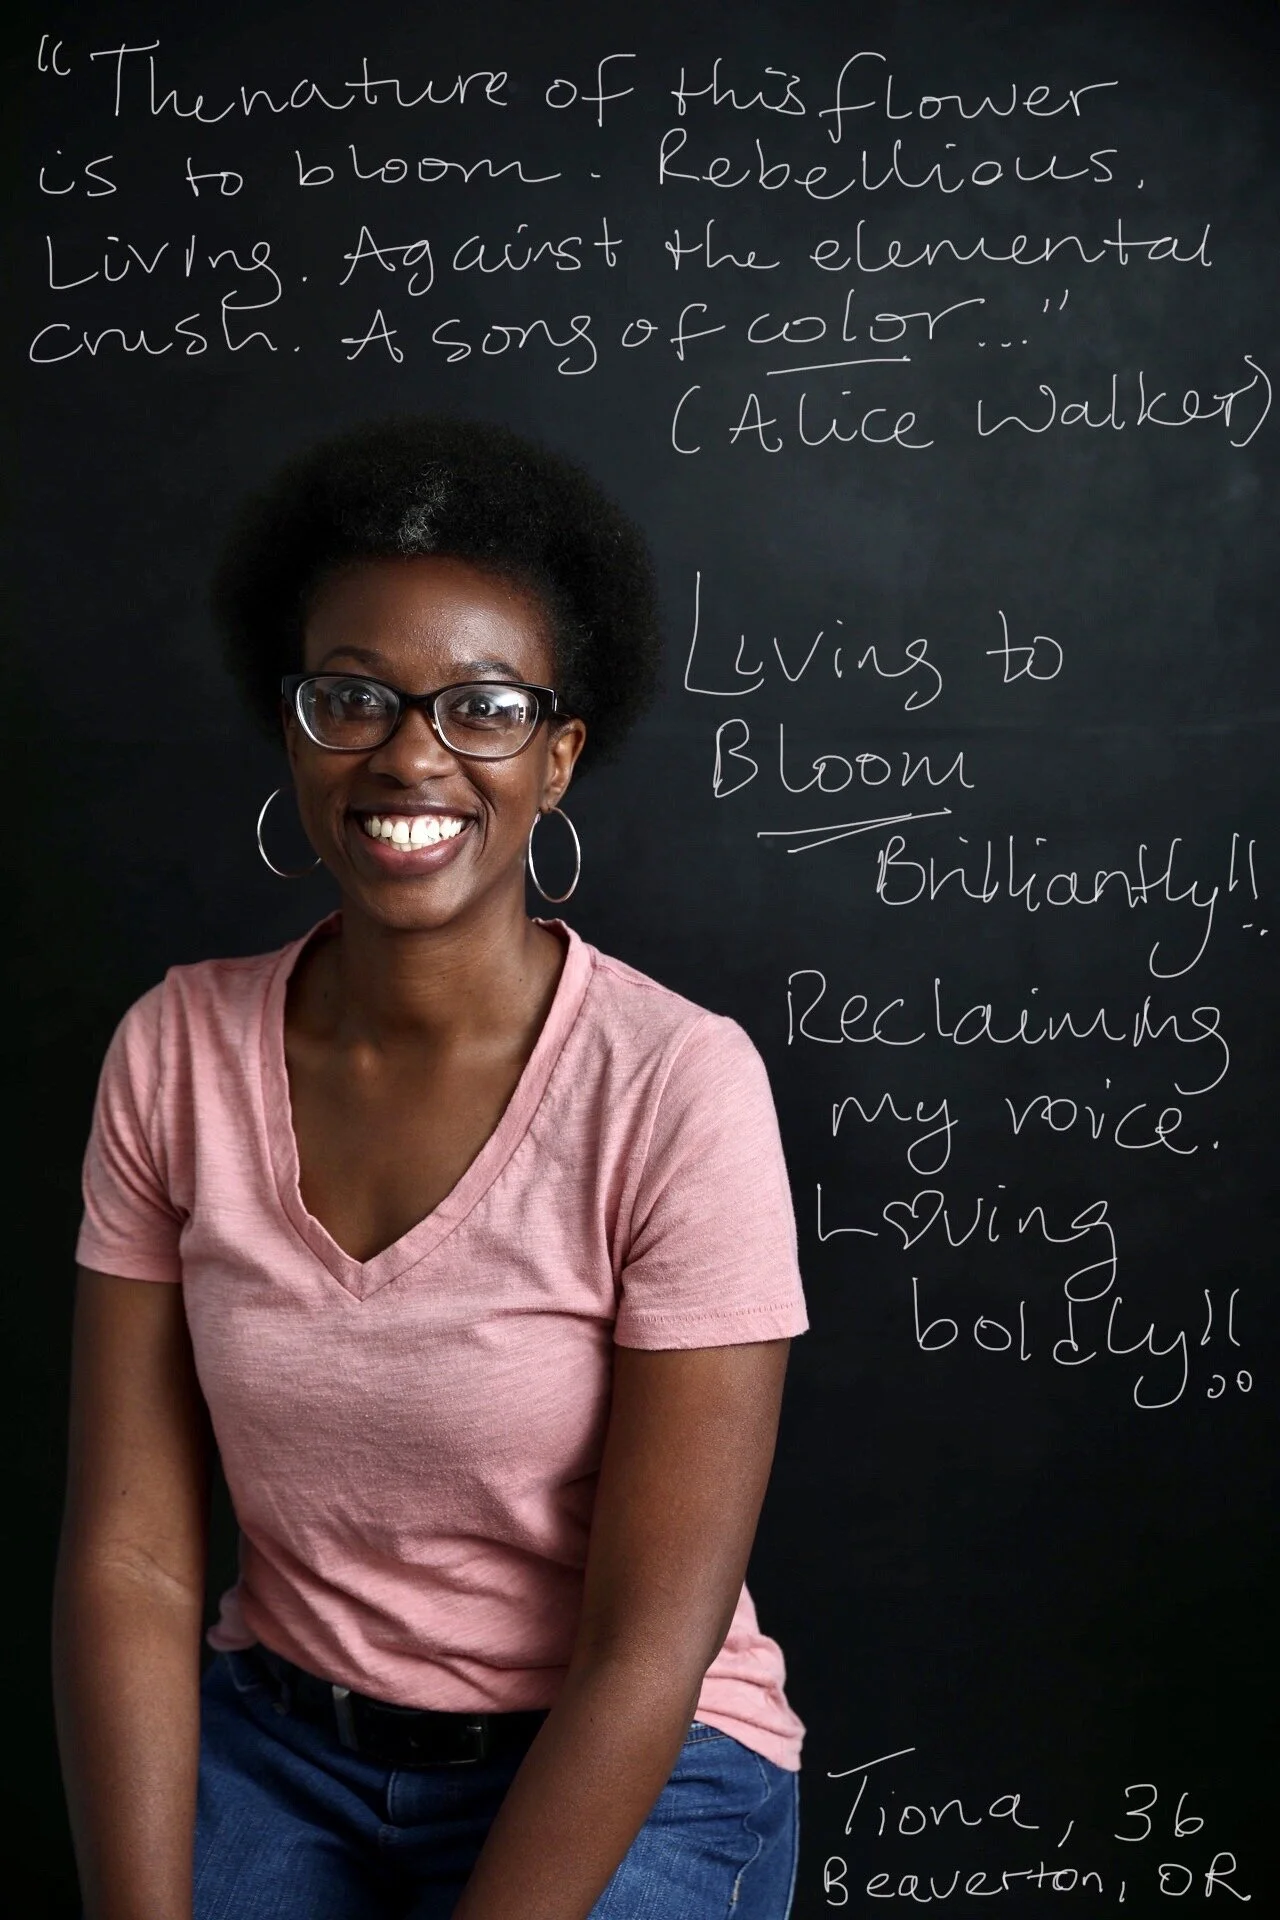 "The nature of this flower
is to bloom. Rebellious.
Living. Against the elemental
crush. A song of color..."
(Alice Walker)
Living to
Bloom
Brilliantly!!
Reclaiming
my voice.
Loving
boldly!!
Tiona, 36
Beaverton, OR